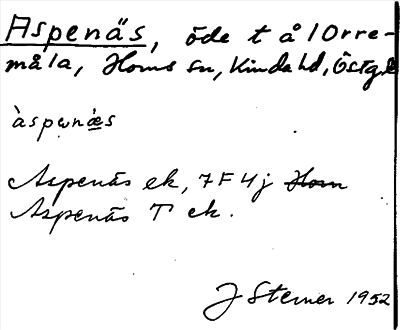 Aspenäs, öde t å l Orre-
måla, Horns sn, Kinda hd, Östg.l
àspənæs
Aspenäs ek, 7F4j Horn
Aspenäs T ek.
J Sterner 1952